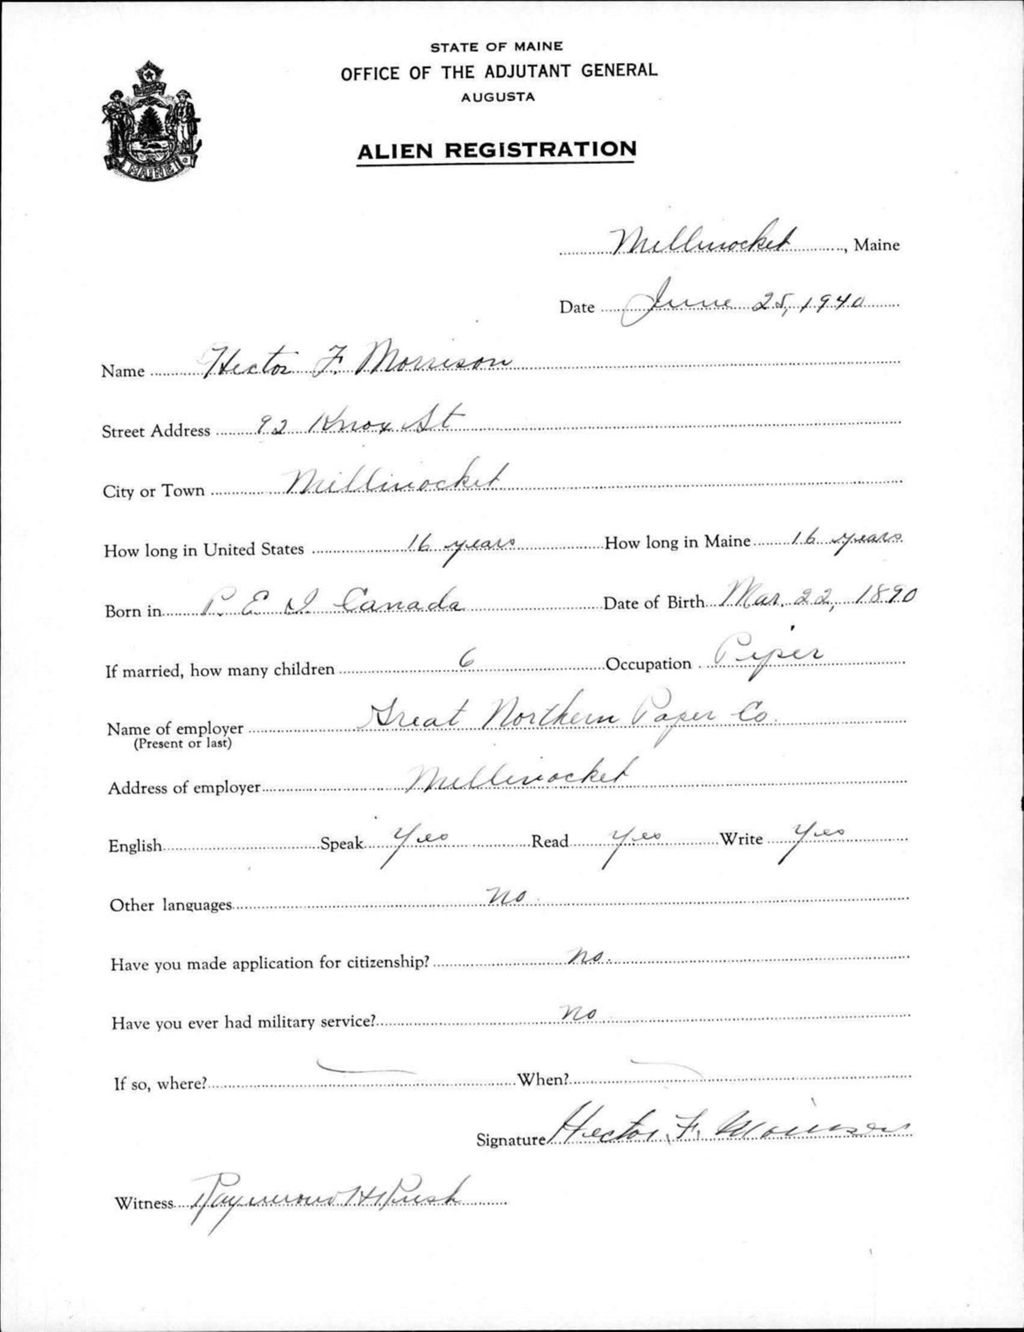 STATE OF MAINE
OFFICE OF THE ADJUTANT GENERAL
AUGUSTA
ALIEN REGISTRATION
MAINE
Millinocket, Maine
Date June 25, 1940
Name Hector F. Morrison
Street Address 92 Knox St
City or Town Millinocket
How long in United States 16 years How long in Maine 16 years
Born in P. E. I Canada Date of Birth Mar. 22, 1890
If married, how many children 6 Occupation Piper
Name of employer Great Northern Paper Co.
(Present or last)
Address of employer Millinocket
English Speak Yes Read Yes Write Yes
Other languages No
Have you made application for citizenship? No.
Have you ever had military service? No
If so, where? When?
Signature Hector F. Morrison
Witness Raymond H Rush